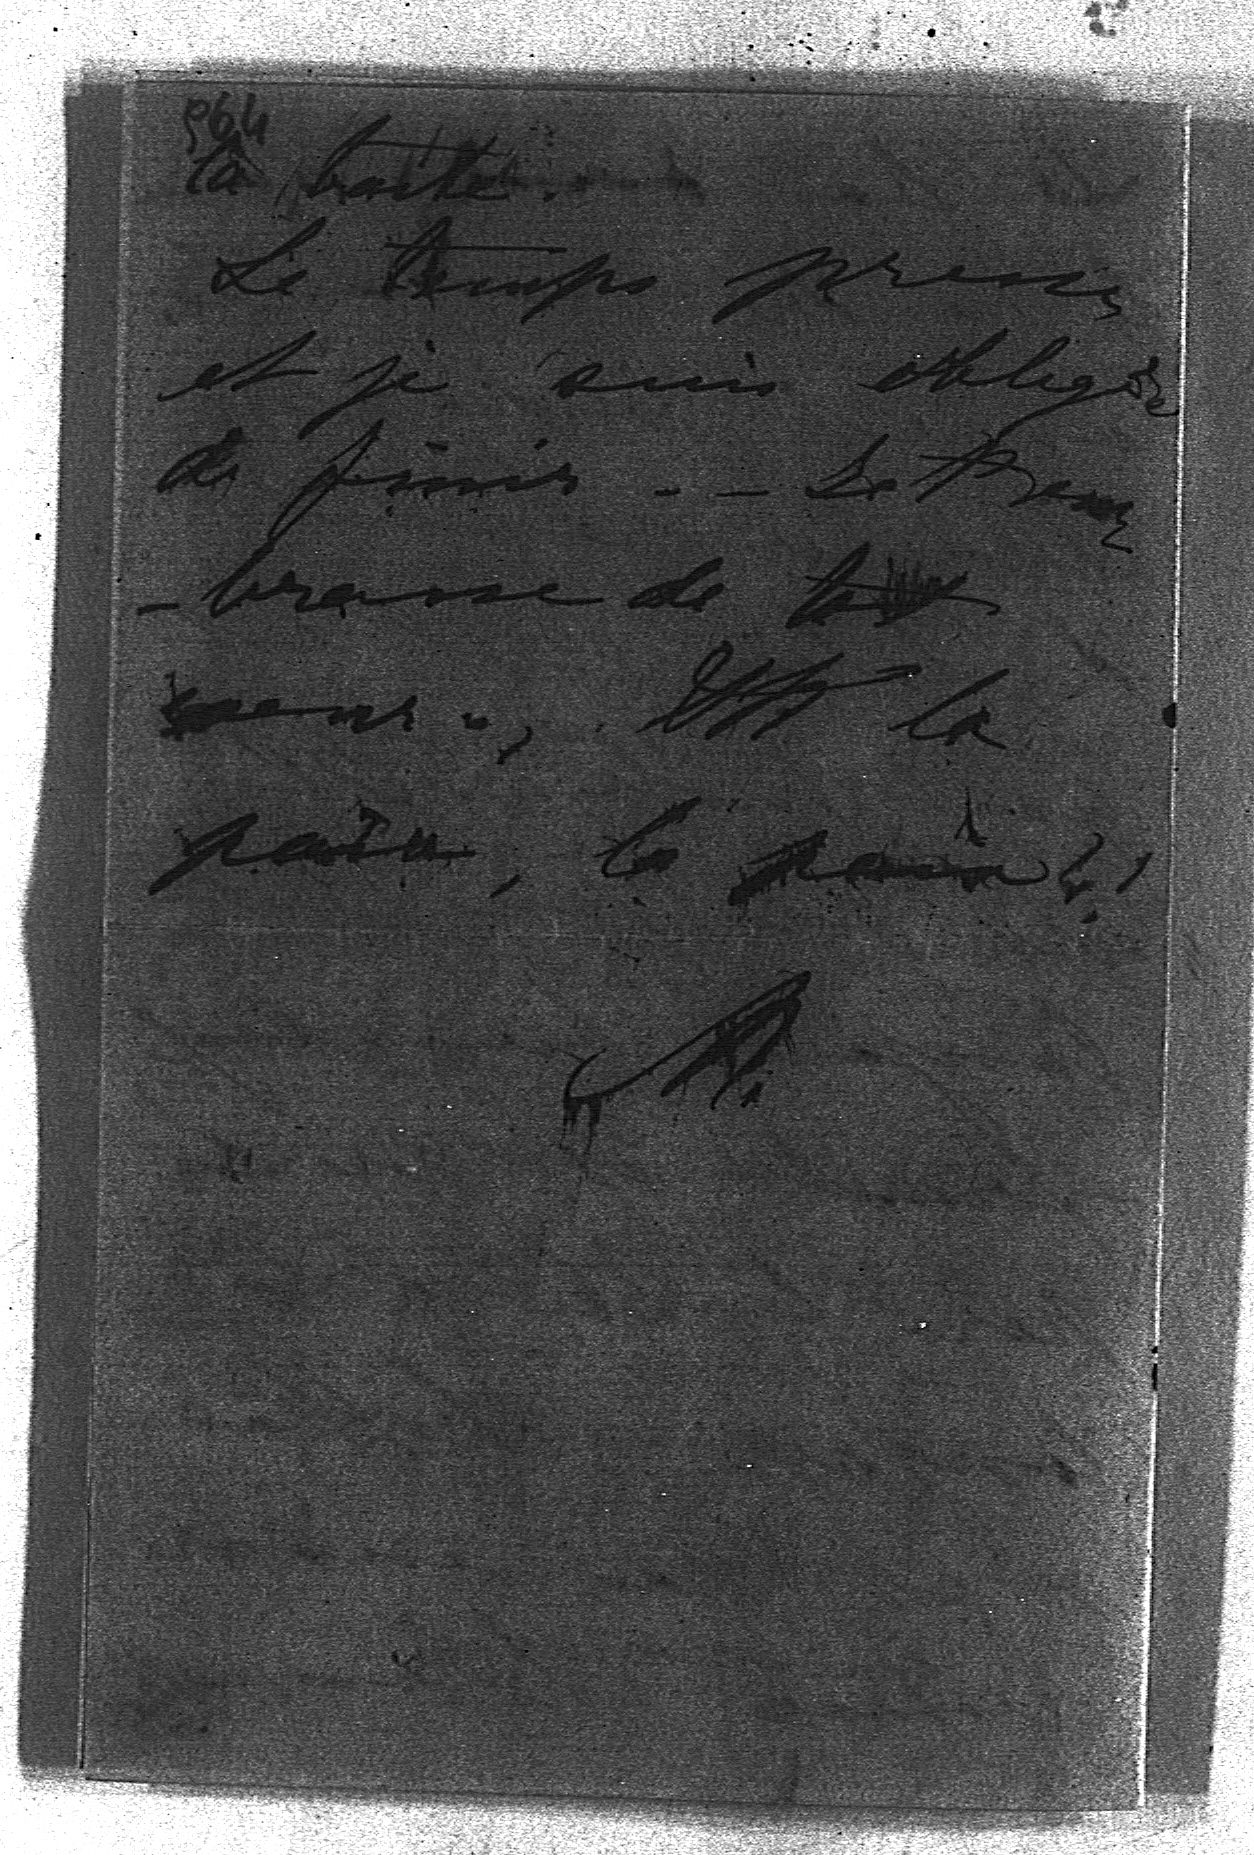 964
la boite.
Le temps presse
et je suis obligée
de finir - - Je t'em
- brasse de tout
coeur . , . la
paix, la paix !!